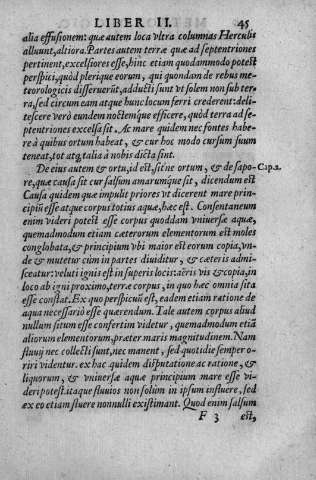 LIBER II. 45
alia effusionem: quæ autem loca vltra columnas Herculis
alluunt, altiora. Partes autem terræ quæ ad septentriones
pertinent, excelsiores esse, hinc etiam quodammodo potest
perspici, quòd plerique eorum, qui quondam de rebus me-
teorologicis disseruerũt, adducti sunt vt solem non sub ter
ra, sed circum eam atque hunc locum ferri crederent: deli-
tescere verò eundem noctemque efficere, quòd terra ad se-
ptentriones excelsa sit. Ac mare quidem nec fontes habe-
re à quibus ortum habeat, & cur hoc modo cursum suum
teneat, tot atq; talia à nobis dicta sint.
De eius autem & ortu, id est, sit ne ortum, & de sapo- Cap.2.
re, quæ causa sit cur salsum amarumque sit, dicendum est
Causa quidem quæ impulit priores vt dicerent mare prin-
cipiũ esse atque corpus totius aquæ, hæc est. Consentaneum
enim videri potest esse corpus quoddam vniuersæ aquæ,
quemadmodum etiam cæterorum elementorum est moles
conglobata, & principium vbi maior est eorum copia, vn-
de & mutetur cùm in partes diuiditur, & cæteris admi-
sceatur: veluti ignis est in superis locis: aëris vis & copia, in
loco ab igni proximo, terræ corpus, in quo hæc omnia sita
esse constat. Ex quo perspicuũ est, eadem etiam ratione de
aqua necessariò esse quærendum. Tale autem corpus aliud
nullum situm esse confertim videtur, quemadmodum etiã
aliorum elementorum, præter maris magnitudinem. Nam
fluuij nec collecti sunt, nec manent, sed quotidie semper o-
riri videntur. ex hac quidem disputatione ac ratione, &
liquorum, & vniuersæ aquæ principium mare esse vi-
deri potest. itaque fluuios non solùm in ipsum influere, sed
ex eo etiam fluere nonnulli existimant. Quod enim salsum
F 3 est,